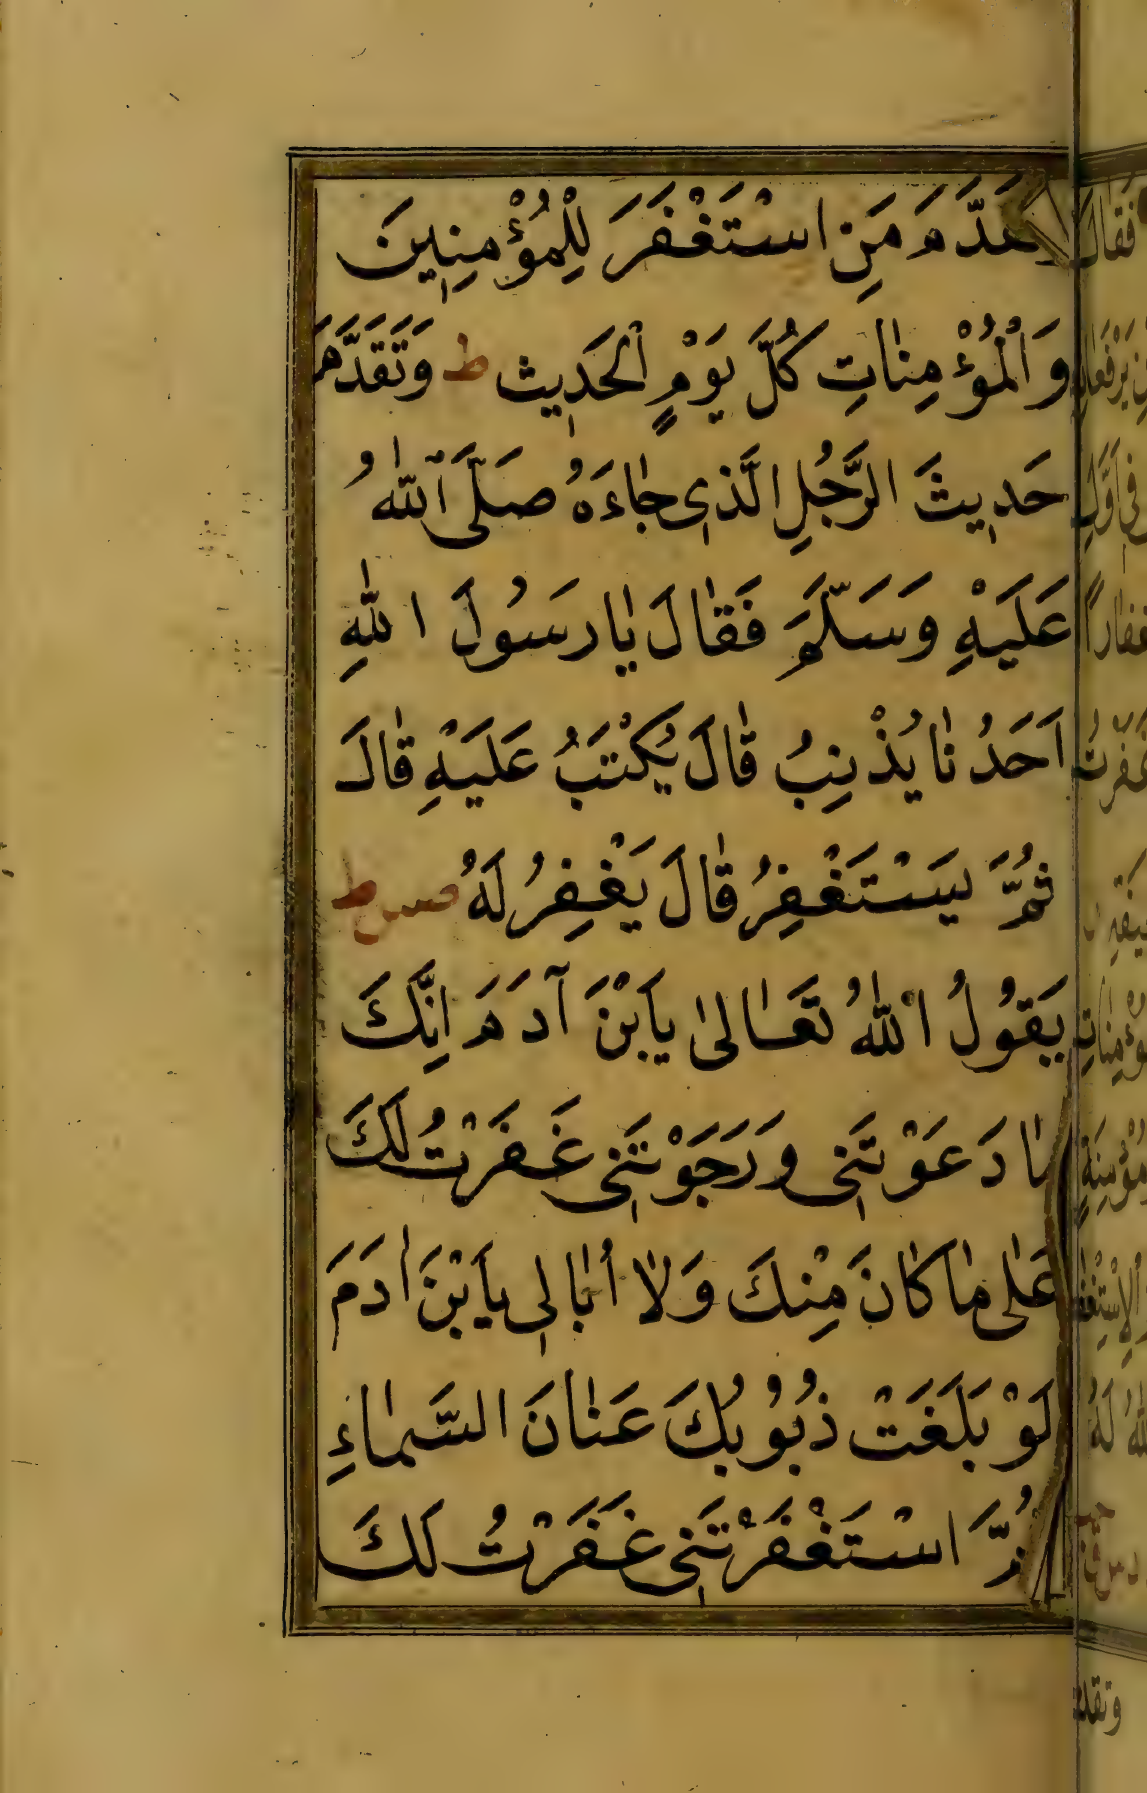 وَتَقَدَّمَ مَنِ اسْتَغْفَرَ لِلْمُؤْمِنِينَ
وَالْمُؤْمِنَاتِ كُلَّ يَوْمٍ اَلْحَدِيث ط وَتَقَدَّمَ
حَدِيثَ الرَّجُلِ الَّذِي جَاءَهُ صَلَّى اللهُ
عَلَيْهِ وَسَلَّمَ فَقَالَ يَا رَسُولَ اللهِ
اَحَدُنَا يُذْنِبُ قَالَ يُكْتَبُ عَلَيْهِ قَالَ
ثُمَّ يَسْتَغْفِرُ قَالَ يَغْفِرُ لَهُ مس ط
يَقُولُ اللهُ تَعَالَىٰ يَابْنَ آدَمَ اِنَّكَ
مَا دَعَوْتَنِي وَرَجَوْتَنِي غَفَرْتُ لَكَ
عَلَى مَا كَانَ مِنْكَ وَلَا أُبَالِي يَابْنَ اٰدَمَ
لَوْ بَلَغَتْ ذُنُوبُكَ عَنَانَ السَّمَاءِ
ثُمَّ اسْتَغْفَرْتَنِي غَفَرْتُ لَكَ